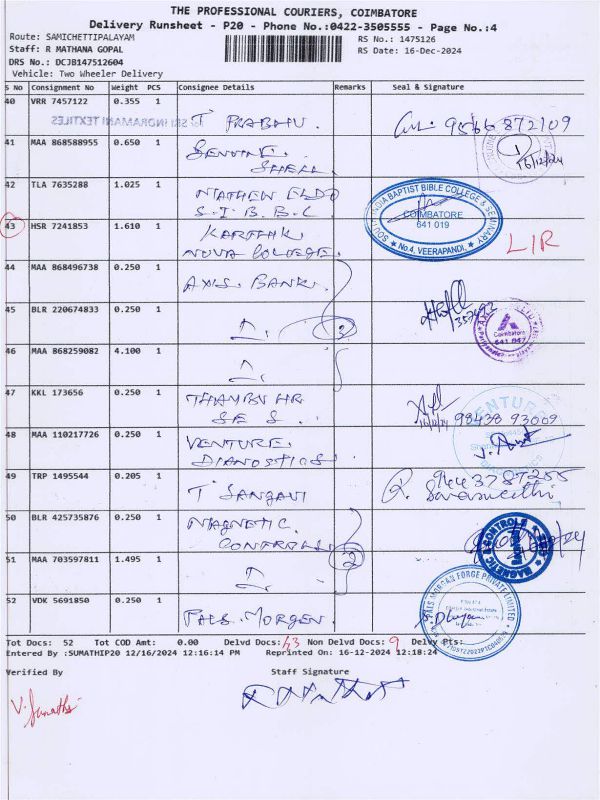 THE PROFESSIONAL COURIERS, COIMBATORE
Delivery Runsheet - P20 - Phone No.:0422-3505555 - Page No.:4
Route: SAMICHETTIPALAYAM
RS No.: 1475126
Staff: R MATHANA GOPAL
RS Date: 16-Dec-2024
DRS No.: DCJB147512604
Vehicle: Two Wheeler Delivery
S No Consignment No Weight PCS Consignee Details Remarks Seal & Signature
40 VRR 7457122 0.355 1 T PRABHU. 9566 872109
41 MAA 868588955 0.650 1 GENUINE SHELL
16/12/24
42 TLA 7635288 1.025 1 MATHEW
S.I.B.B.C
SOUTH INDIA BAPTIST BIBLE COLLEGE & SEMINARY
COIMBATORE
641 019
No.4, VEERAPANDI.
43 HSR 7241853 1.610 1 KARTHIK
NOVA COLLEGE.
LIR
44 MAA 868496738 0.250 1 AXIS BANK.
45 BLR 220674833 0.250 1
Coimbatore
641 047
46 MAA 868259082 4.100 1
47 KKL 173656 0.250 1 THAMBU HR
98438 93009
VENTURE
48 MAA 110217726 0.250 1 VENTURE
DIANOSTICS
49 TRP 1495544 0.205 1 T SANGAVI
50 BLR 425735876 0.250 1 MAGNETIC.
CONTROLS
MAGNETIC CONTROLS
51 MAA 703597811 1.495 1
52 VDK 5691850 0.250 1 PALS MORGEN.
PALS MORGAN FORGE PRIVATE LIMITED
Tot Docs: 52 Tot COD Amt: 0.00 Delvd Docs: 43 Non Delvd Docs: 9 Delvy Pts:
Entered By :SUMATHIP20 12/16/2024 12:16:14 PM Reprinted On: 16-12-2024 12:18:24
Verified By Staff Signature